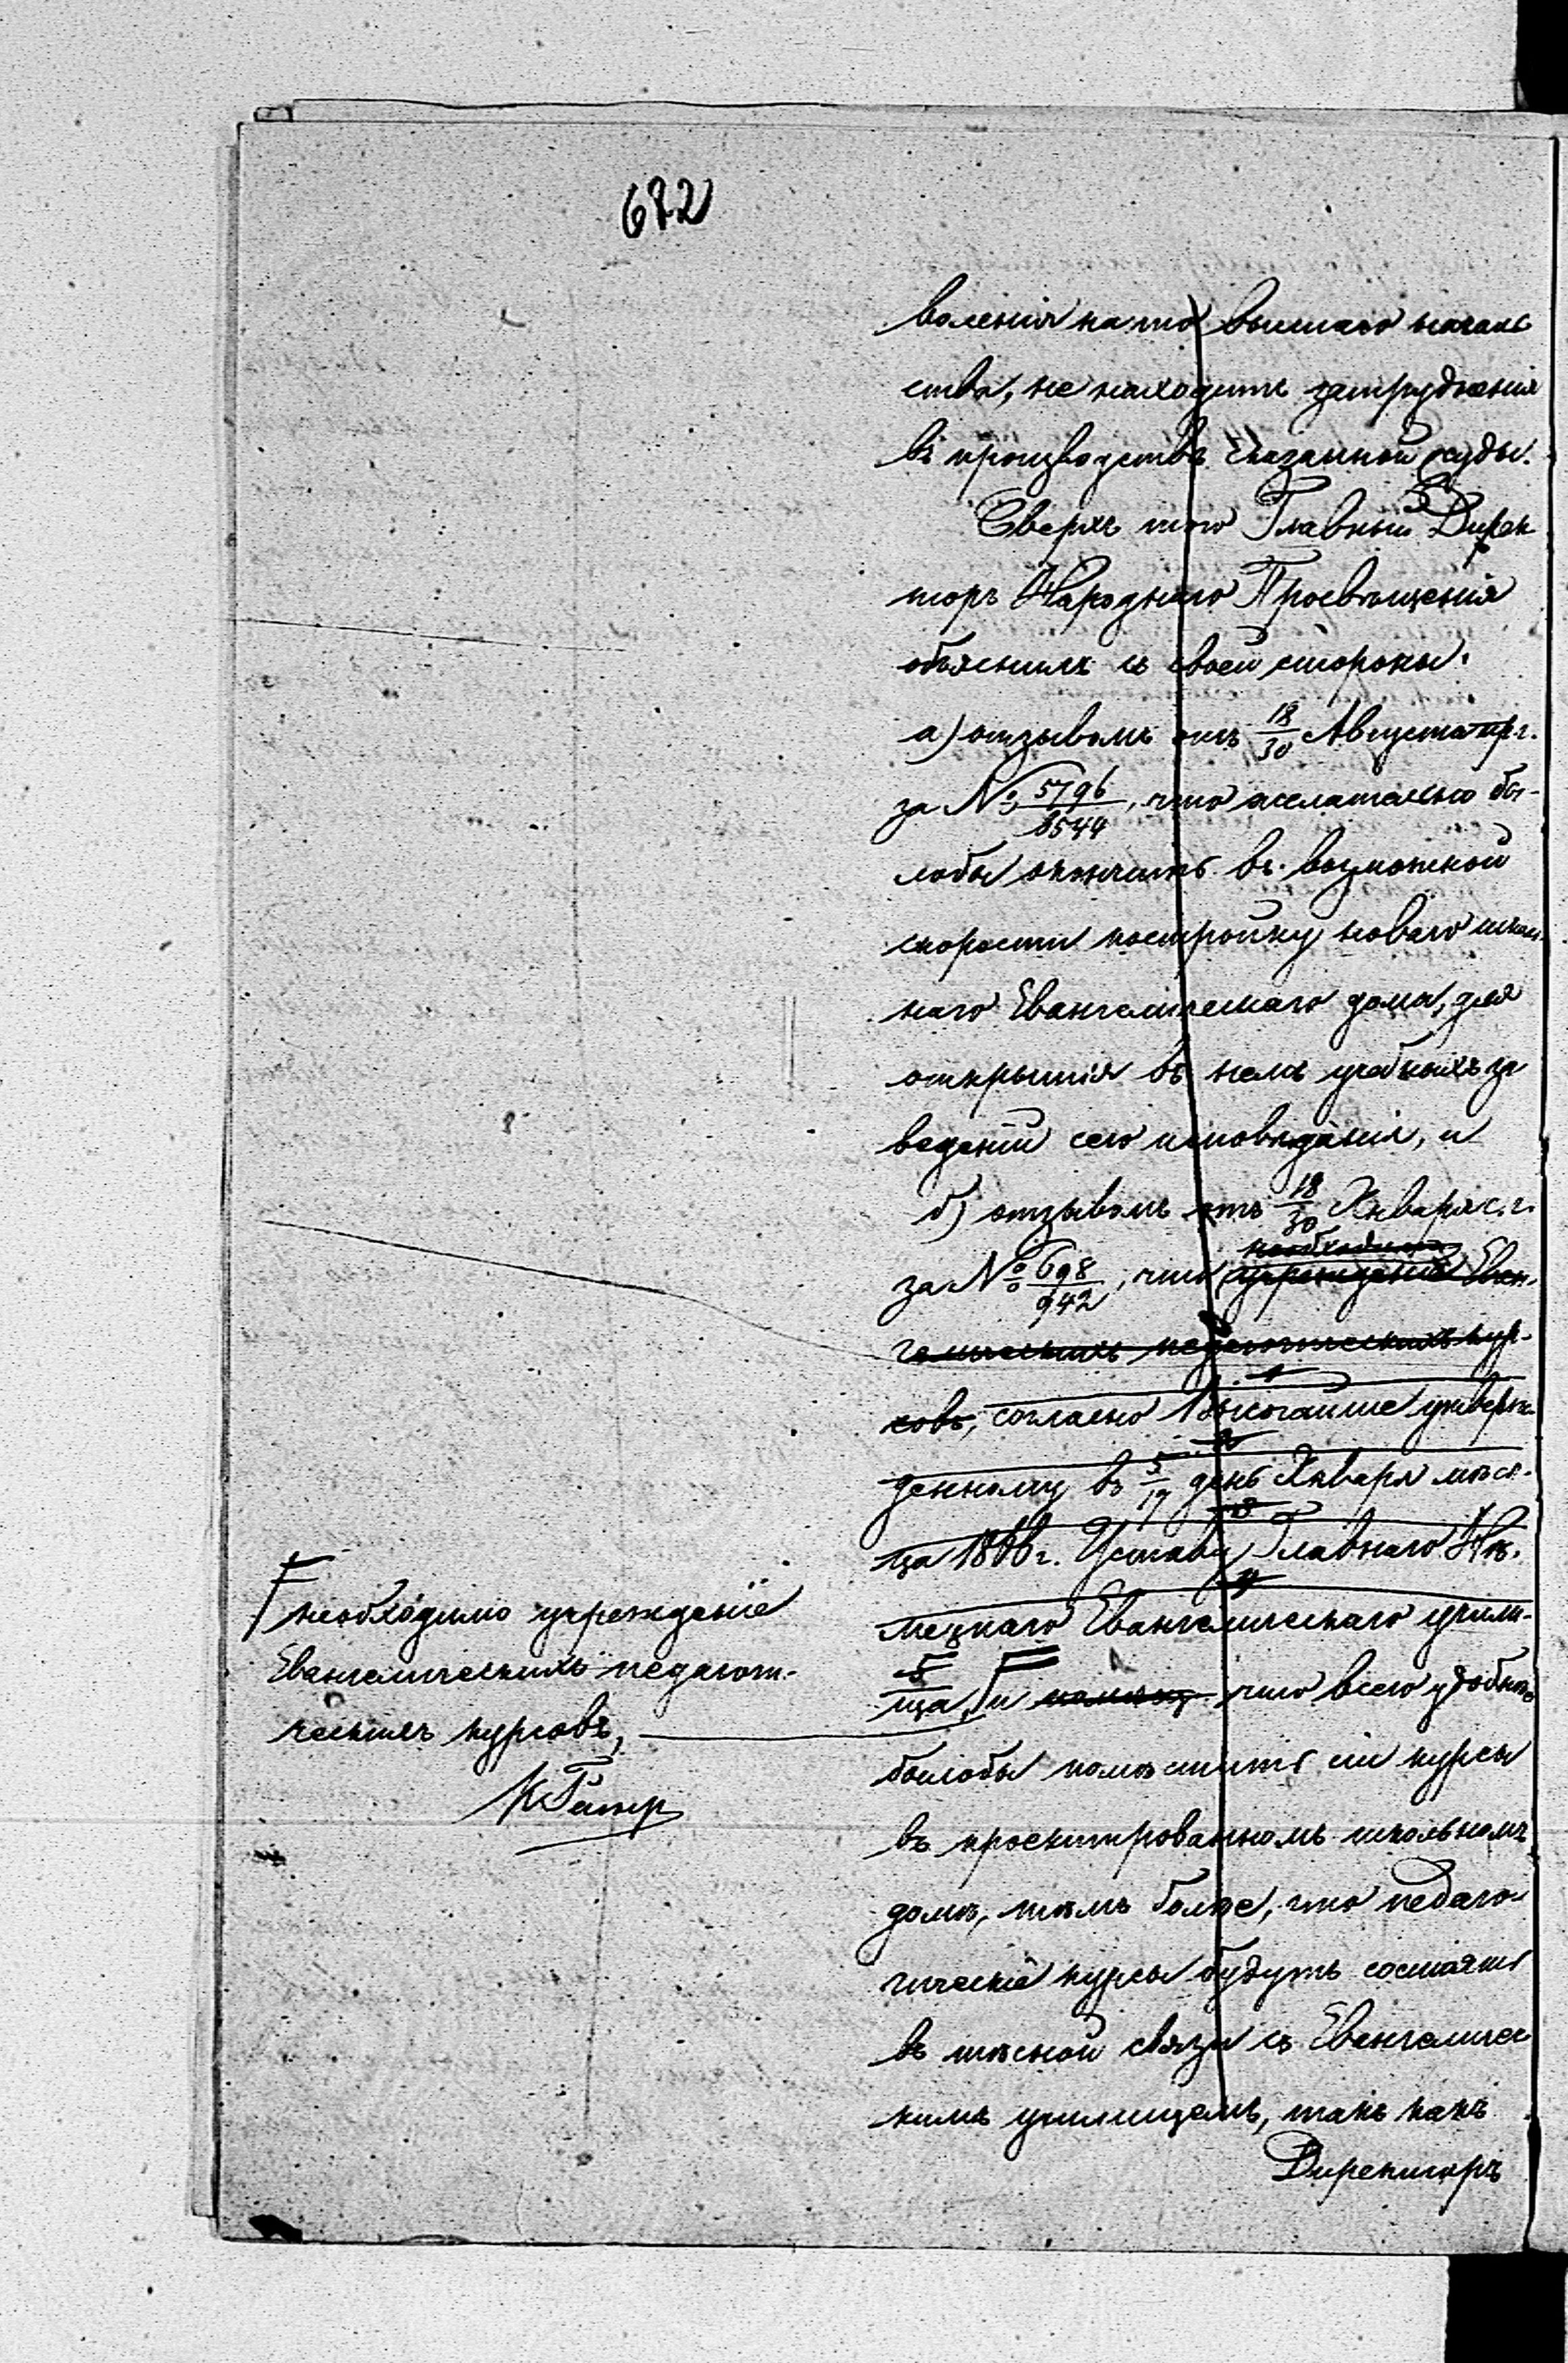 672
воленія на то высшаго началь
ства, не находитъ затрудненія
въ производствѣ сказанной ссуды.
Сверхъ того Главный Дирек
торъ Народнаго Просвѣщенія
объяснилъ съ своей стороны:
а) отзывомъ отъ 18/30 Августа пр. г.
за № 5796/8544, что желательно бы-
лобы окончить въ возможной
скорости постройку новаго школь
наго Евангелическаго дома, для
открытія въ немъ учебныхъ за
веденій сего исповѣданія, и
б) отзывомъ отъ 18/30 Января с. г.
необходимо
за № 698/942, что учрежденіе Еван-
гелическихъ педагогическихъ кур-
совъ, согласно Высочайше утверж-
денному въ 5/17 день Января мѣся-
ца 1866 г. Уставу Главнаго Нѣ-
мецкаго Евангелическаго учили-
ща, и что всего удобнѣе
былобы помѣстить сіи курсы
въ проектированномъ школьномъ
домѣ, тѣмъ болѣе, что педаго-
гическіе курсы будутъ состоять
въ тѣсной связи съ Евангеличес
кимъ училищемъ, такъ какъ
Директоръ
необходимо учрежденіе
Евангелическихъ педагоги-
ческихъ курсовъ,